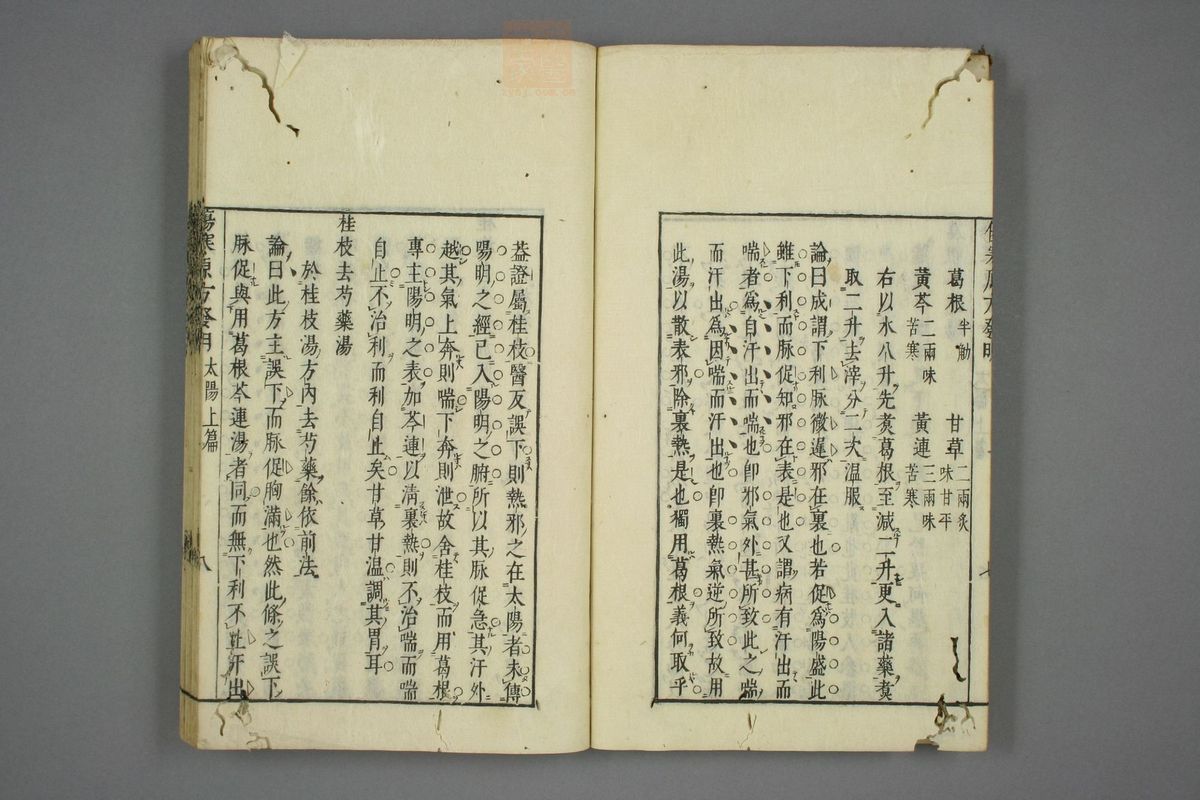 葛根半觔　甘草二兩炙味甘平
黃芩二兩味苦寒　黃連三兩味苦寒
右以水八升先煑葛根至減二升更入諸藥煑
取二升去滓分二次温服
論曰成謂下利脉微遲邪在裏也若促爲陽盛此
雖下利而脉促知邪在表是也又謂病有汗出而
喘者爲自汗出而喘也卽邪氣外甚所致此之喘
而汗出爲因喘而汗出也卽裏熱氣逆所致故用
此湯以散表邪除裏熱是也獨用葛根義何取乎
葢證屬桂枝醫反誤下則熱邪之在太陽者未傳
陽明之經已入陽明之腑所以其脉促急其汗外
越其氣上奔則喘下奔則泄故舍桂枝而用葛根
專主陽明之表加芩連以清裏熱則不治喘而喘
自止不治利而利自止矣甘草甘温調其胃耳
桂枝去芍藥湯
於桂枝湯方內去芍藥餘依前法
論曰此方主誤下而脉促胸滿也然此條之誤下
脉促與用葛根芩連湯者同而無下利不止汗出
傷寒源方發明　太陽上篇　八
zysj.com.cn